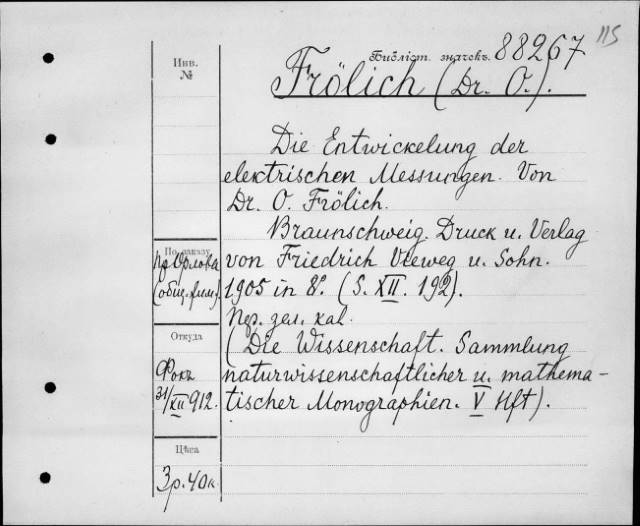 115
Инв.
№
Библіот. значекъ. 88267
Frölich (Dr. O.).
Die Entwickelung der
elektrischen Messungen. Von
Dr. O. Frölich.
Braunschweig. Druck u. Verlag
von Friedrich Vieweg u. Sohn.
1905 in 8°. (S. XII. 192).
(Die Wissenschaft. Sammlung
naturwissenschaftlicher u. mathema-
tischer Monographien. V Hft).
По заказу
пр. Орлова
(общ. физ.)
Откуда
Фокк
31/XII 912.
Цѣна
3р. 40к.